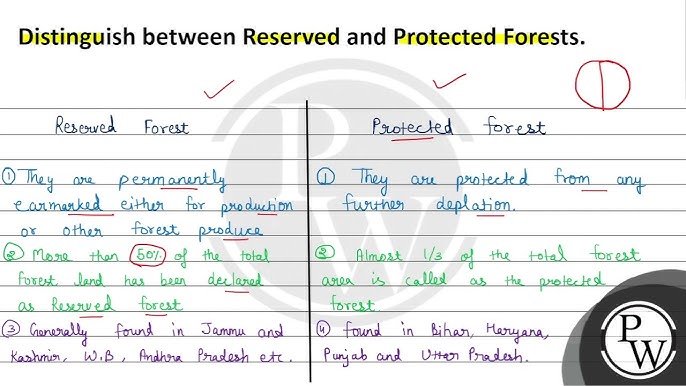 Distinguish between Reserved and Protected Forests.
Reserved Forest
① They are permanently
earmarked either for production
or other forest produce
② More than 50% of the total
forest land has been declared
as Reserved forest
③ Generally found in Jammu and
Kashmir, W.B, Andhra Pradesh etc.
Protected forest
① They are protected from any
further deplation.
② Almost 1/3 of the total forest
area is called as the protected
forest.
④ found in Bihar, Haryana,
Punjab and Uttar Pradesh.
P
W
P
W